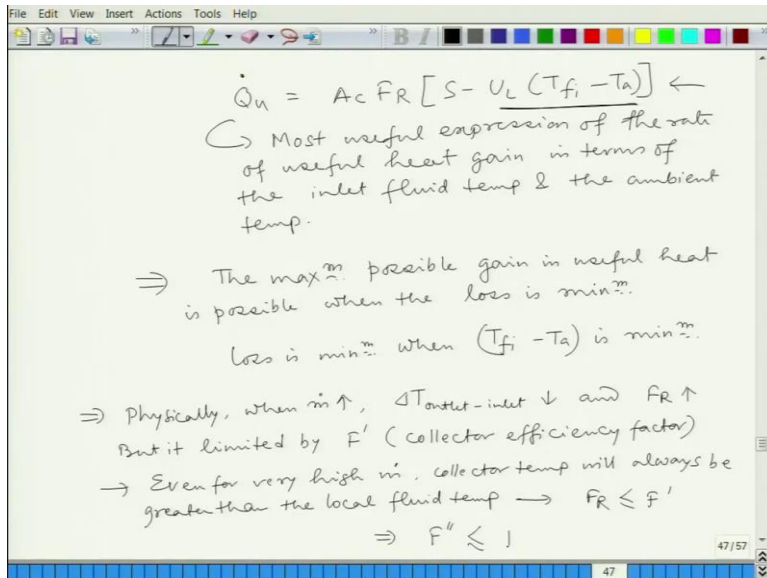 File Edit View Insert Actions Tools Help
Q̇u = Ac FR [S- UL (Tfi -Ta)] ←
↳ Most useful expression of the rate
of useful heat gain in terms of
the inlet fluid temp & the ambient
temp.
⇒ The maxm. possible gain in useful heat
is possible when the loss is minm.
Loss is minm when (Tfi -Ta) is minm.
⇒ Physically, when ṁ↑, ΔToutlet-inlet ↓ and FR ↑
But it limited by F' (collector efficiency factor)
→ Even for very high ṁ, collector temp will always be
greater than the local fluid temp → FR ≤ F'
⇒ F" ≤ 1
47/57
47